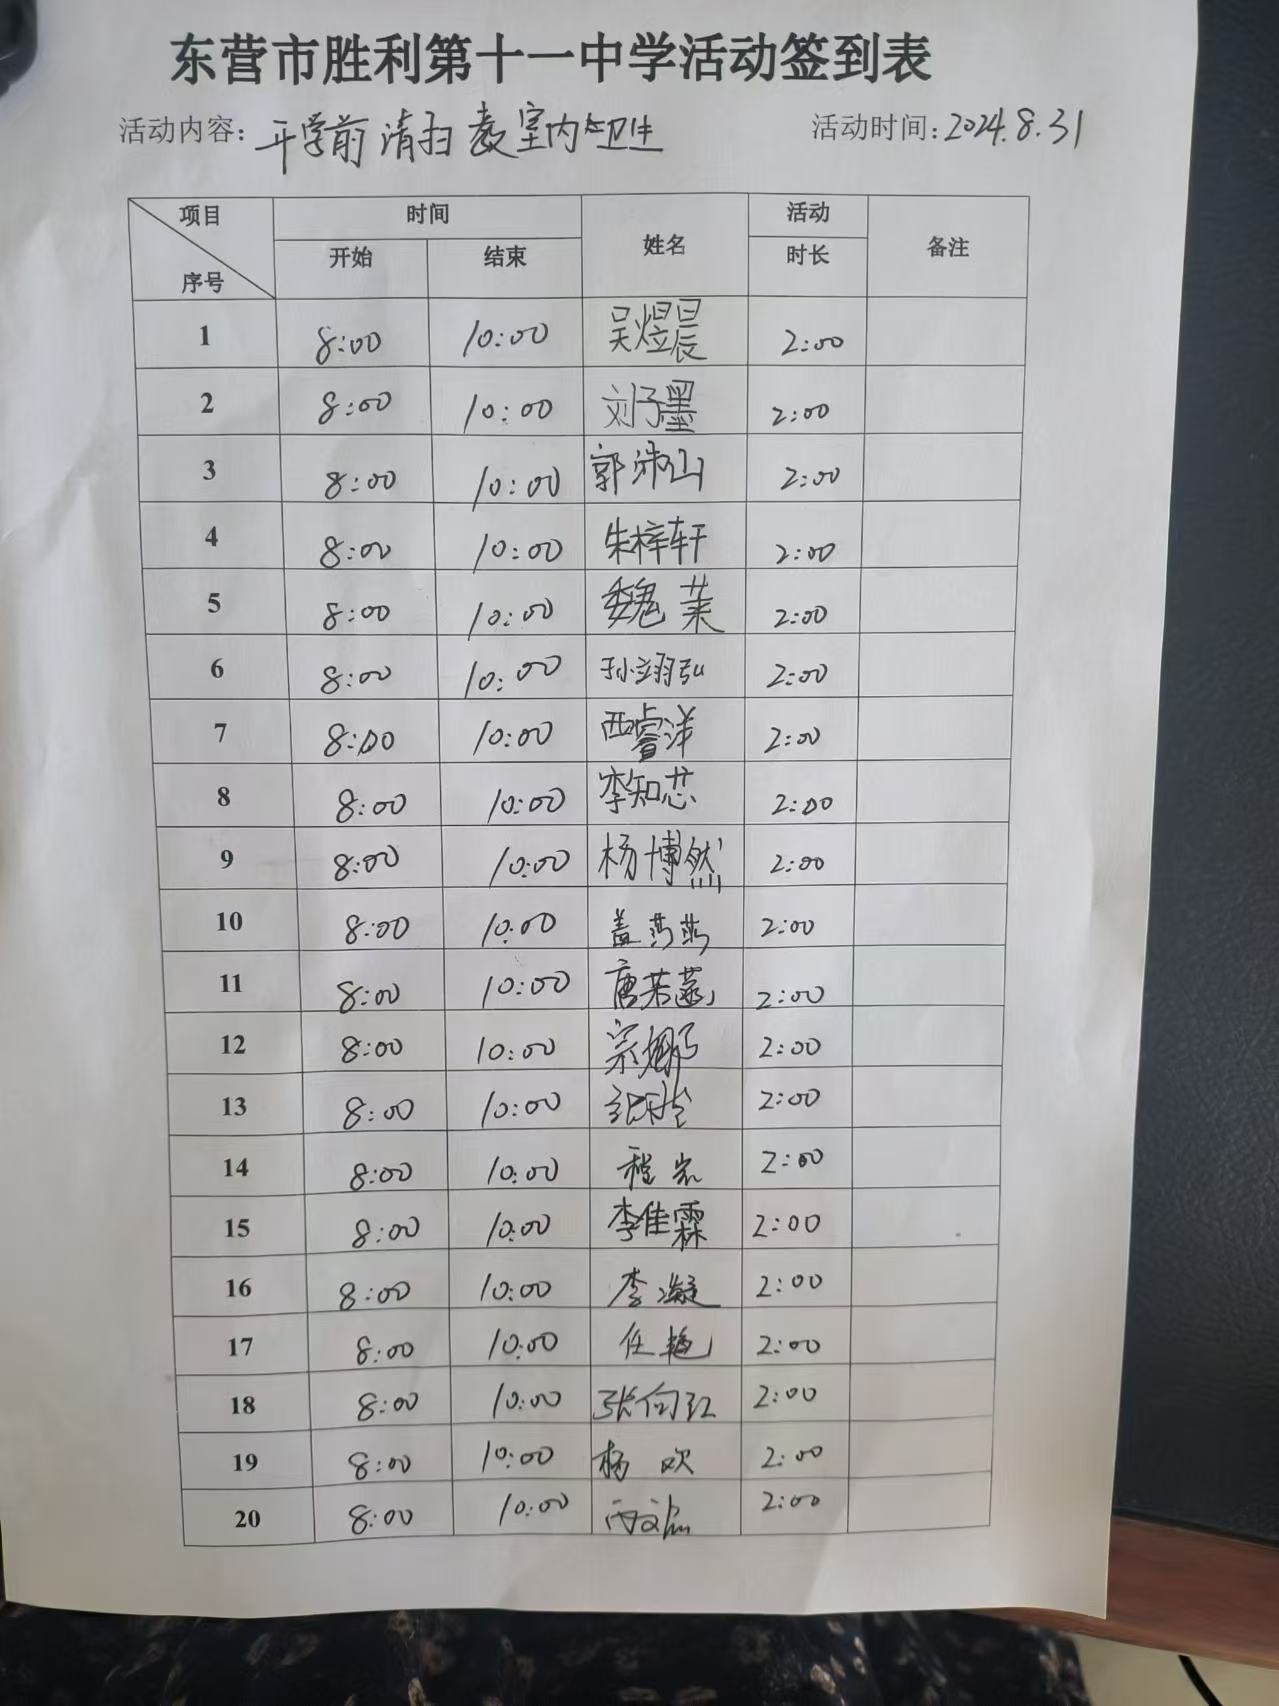 东营市胜利第十一中学活动签到表
活动内容：开学前清扫教室内卫生 活动时间：2024.8.31
项目 时间 姓名 活动 备注
序号 开始 结束 时长
1 8:00 10:00 吴煜晨 2:00
2 8:00 10:00 刘子墨 2:00
3 8:00 10:00 郭沛山 2:00
4 8:00 10:00 朱梓轩 2:00
5 8:00 10:00 魏莱 2:00
6 8:00 10:00 孙翊弘 2:00
7 8:00 10:00 西睿洋 2:00
8 8:00 10:00 李知芯 2:00
9 8:00 10:00 杨博然 2:00
10 8:00 10:00 盖 2:00
11 8:00 10:00 唐若 2:00
12 8:00 10:00 宗 2:00
13 8:00 10:00 2:00
14 8:00 10:00 程 2:00
15 8:00 10:00 李佳霖 2:00
16 8:00 10:00 李凝 2:00
17 8:00 10:00 任艳 2:00
18 8:00 10:00 张向红 2:00
19 8:00 10:00 杨欢 2:00
20 8:00 10:00 2:00